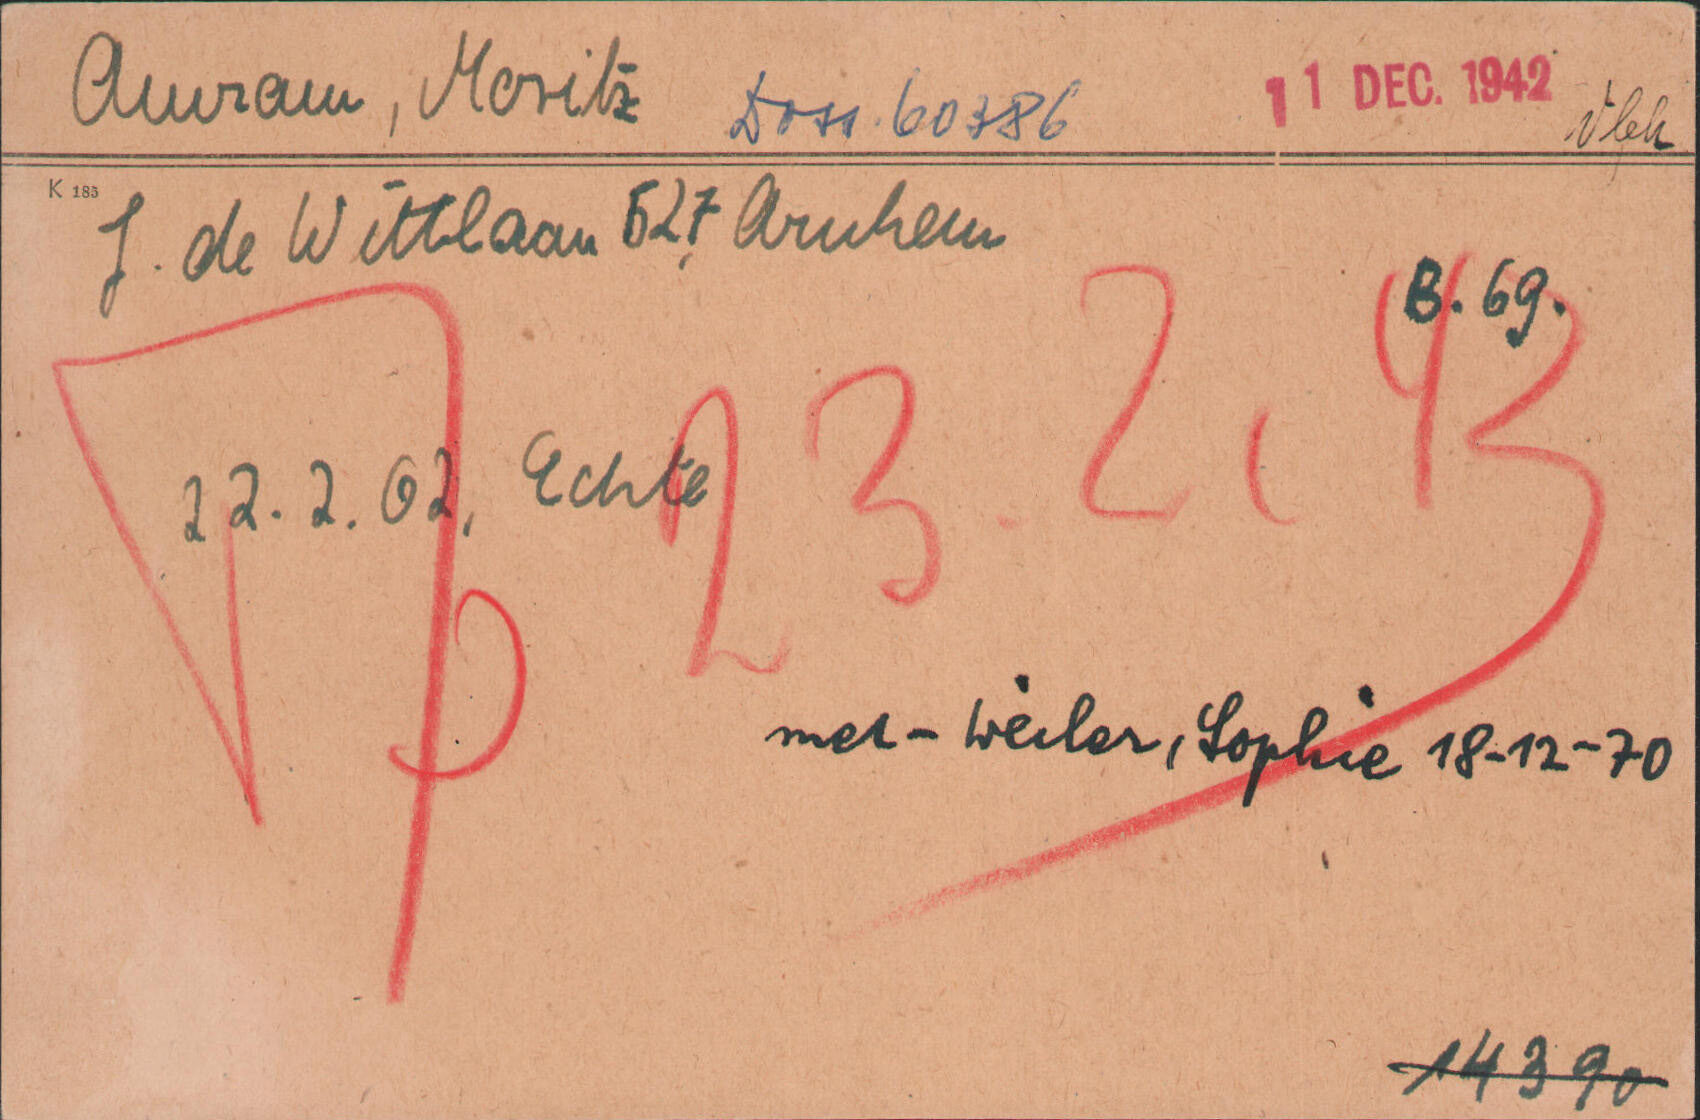 Amram, Moritz Doss. 60386 11 DEC. 1942
K 185
J. de Wittlaan 527, Arnhem
B. 69.
22.2.02, Echte
23.2.43
met - Weiler, Sophie 18-12-70
14390